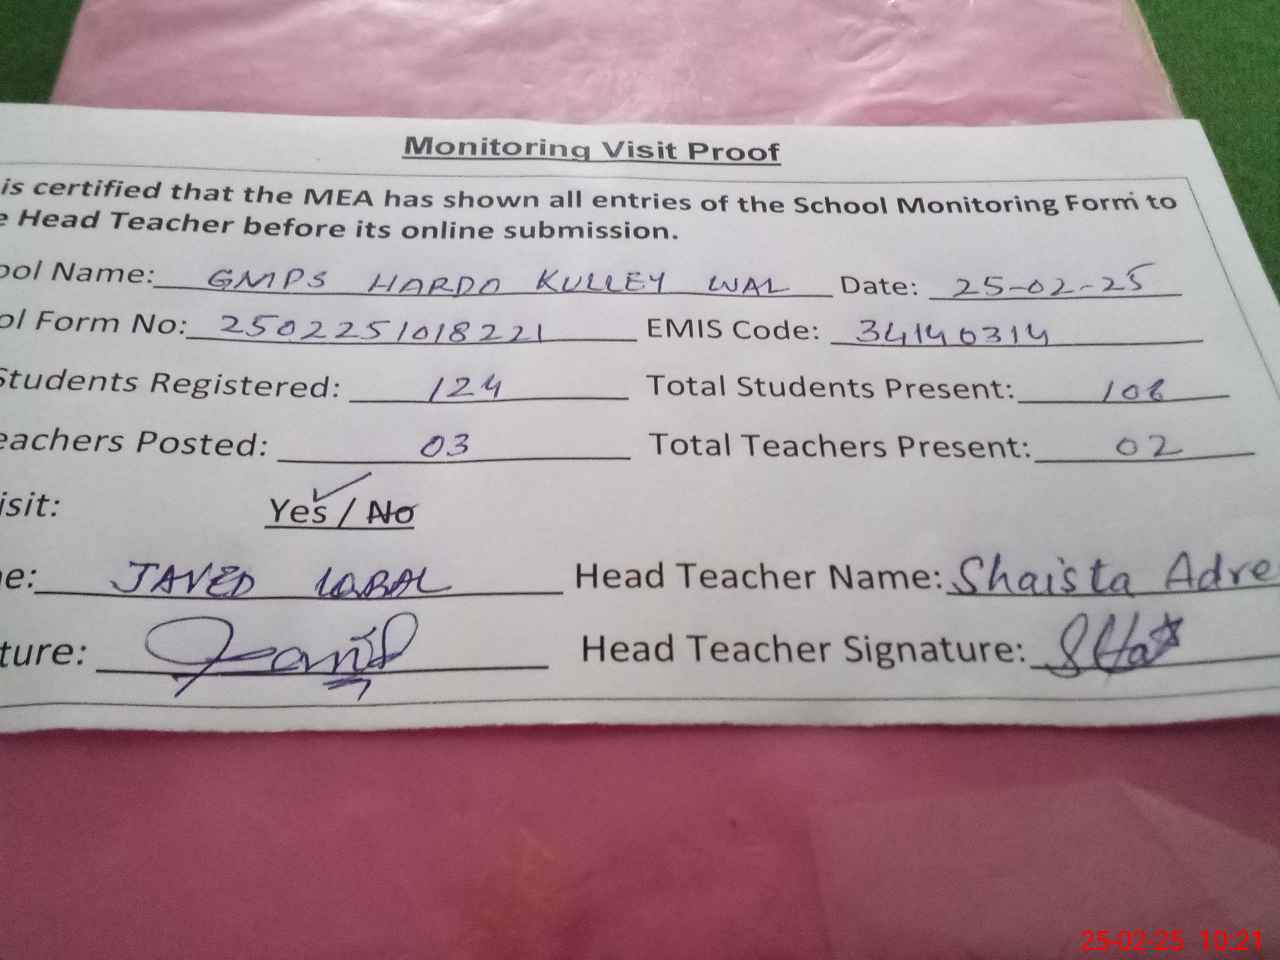 Monitoring Visit Proof
is certified that the MEA has shown all entries of the School Monitoring Form to
e Head Teacher before its online submission.
ool Name: GMPS HARDO KULLEY WAL Date: 25-02-25
ol Form No: 2502251018221 EMIS Code: 34140314
Students Registered: 124 Total Students Present: 108
eachers Posted: 03 Total Teachers Present: 02
isit: Yes / No
e: JAVED IQBAL Head Teacher Name: Shaista Adre
ture: Head Teacher Signature:
25-02-25 10:21